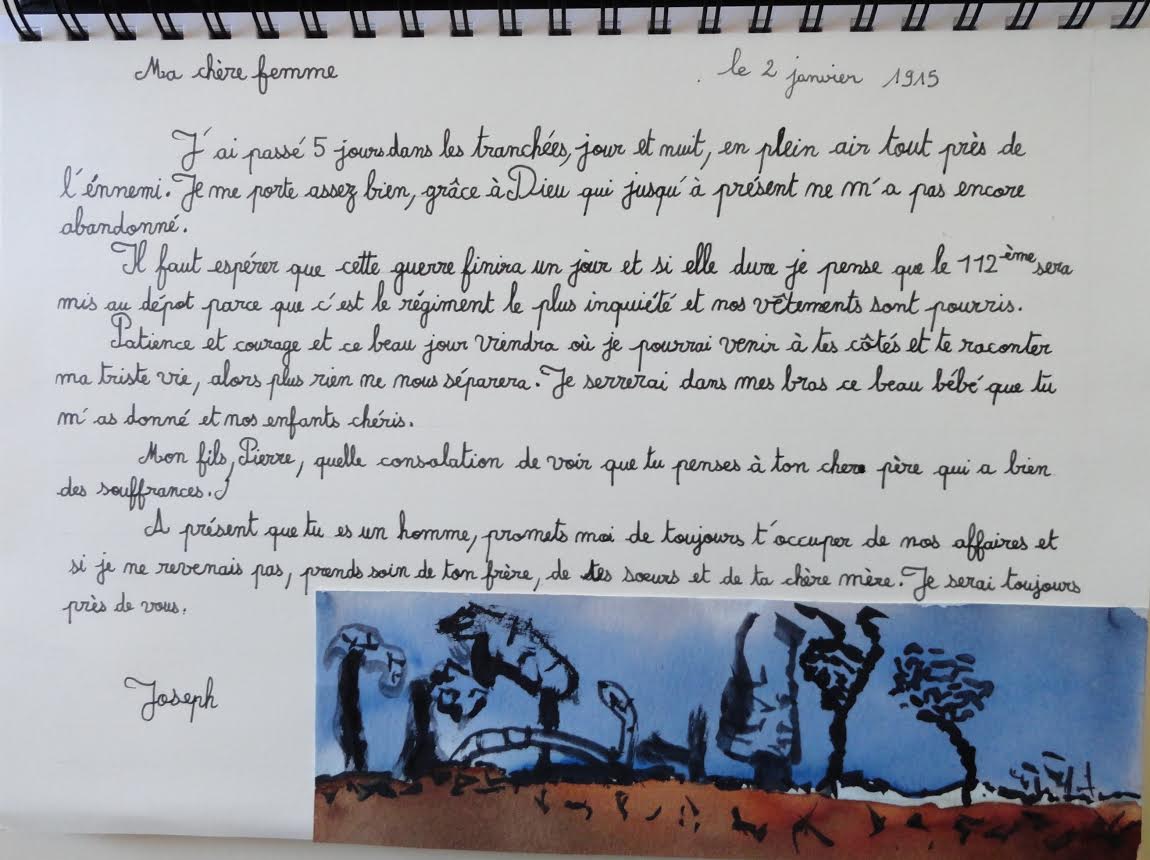 Ma chère femme
le 2 janvier 1915
J'ai passé 5 jours dans les tranchées, jour et nuit, en plein air tout près de
l'énnemi. Je me porte assez bien, grâce à Dieu qui jusqu'à présent ne m'a pas encore
abandonné.
Il faut espérer que cette guerre finira un jour et si elle dure je pense que le 112ème sera
mis au dépot parce que c'est le régiment le plus inquiété et nos vêtements sont pourris.
Patience et courage et ce beau jour viendra où je pourrai venir à tes côtés et te raconter
ma triste vie, alors plus rien ne nous séparera. Je serrerai dans mes bras ce beau bébé que tu
m'as donné et nos enfants chéris.
Mon fils, Pierre, quelle consolation de voir que tu penses à ton cher père qui a bien
des souffrances.
A présent que tu es un homme, promets moi de toujours t'occuper de nos affaires et
si je ne revenais pas, prends soin de ton frère, de tes soeurs et de ta chère mère. Je serai toujours
près de vous.
Joseph